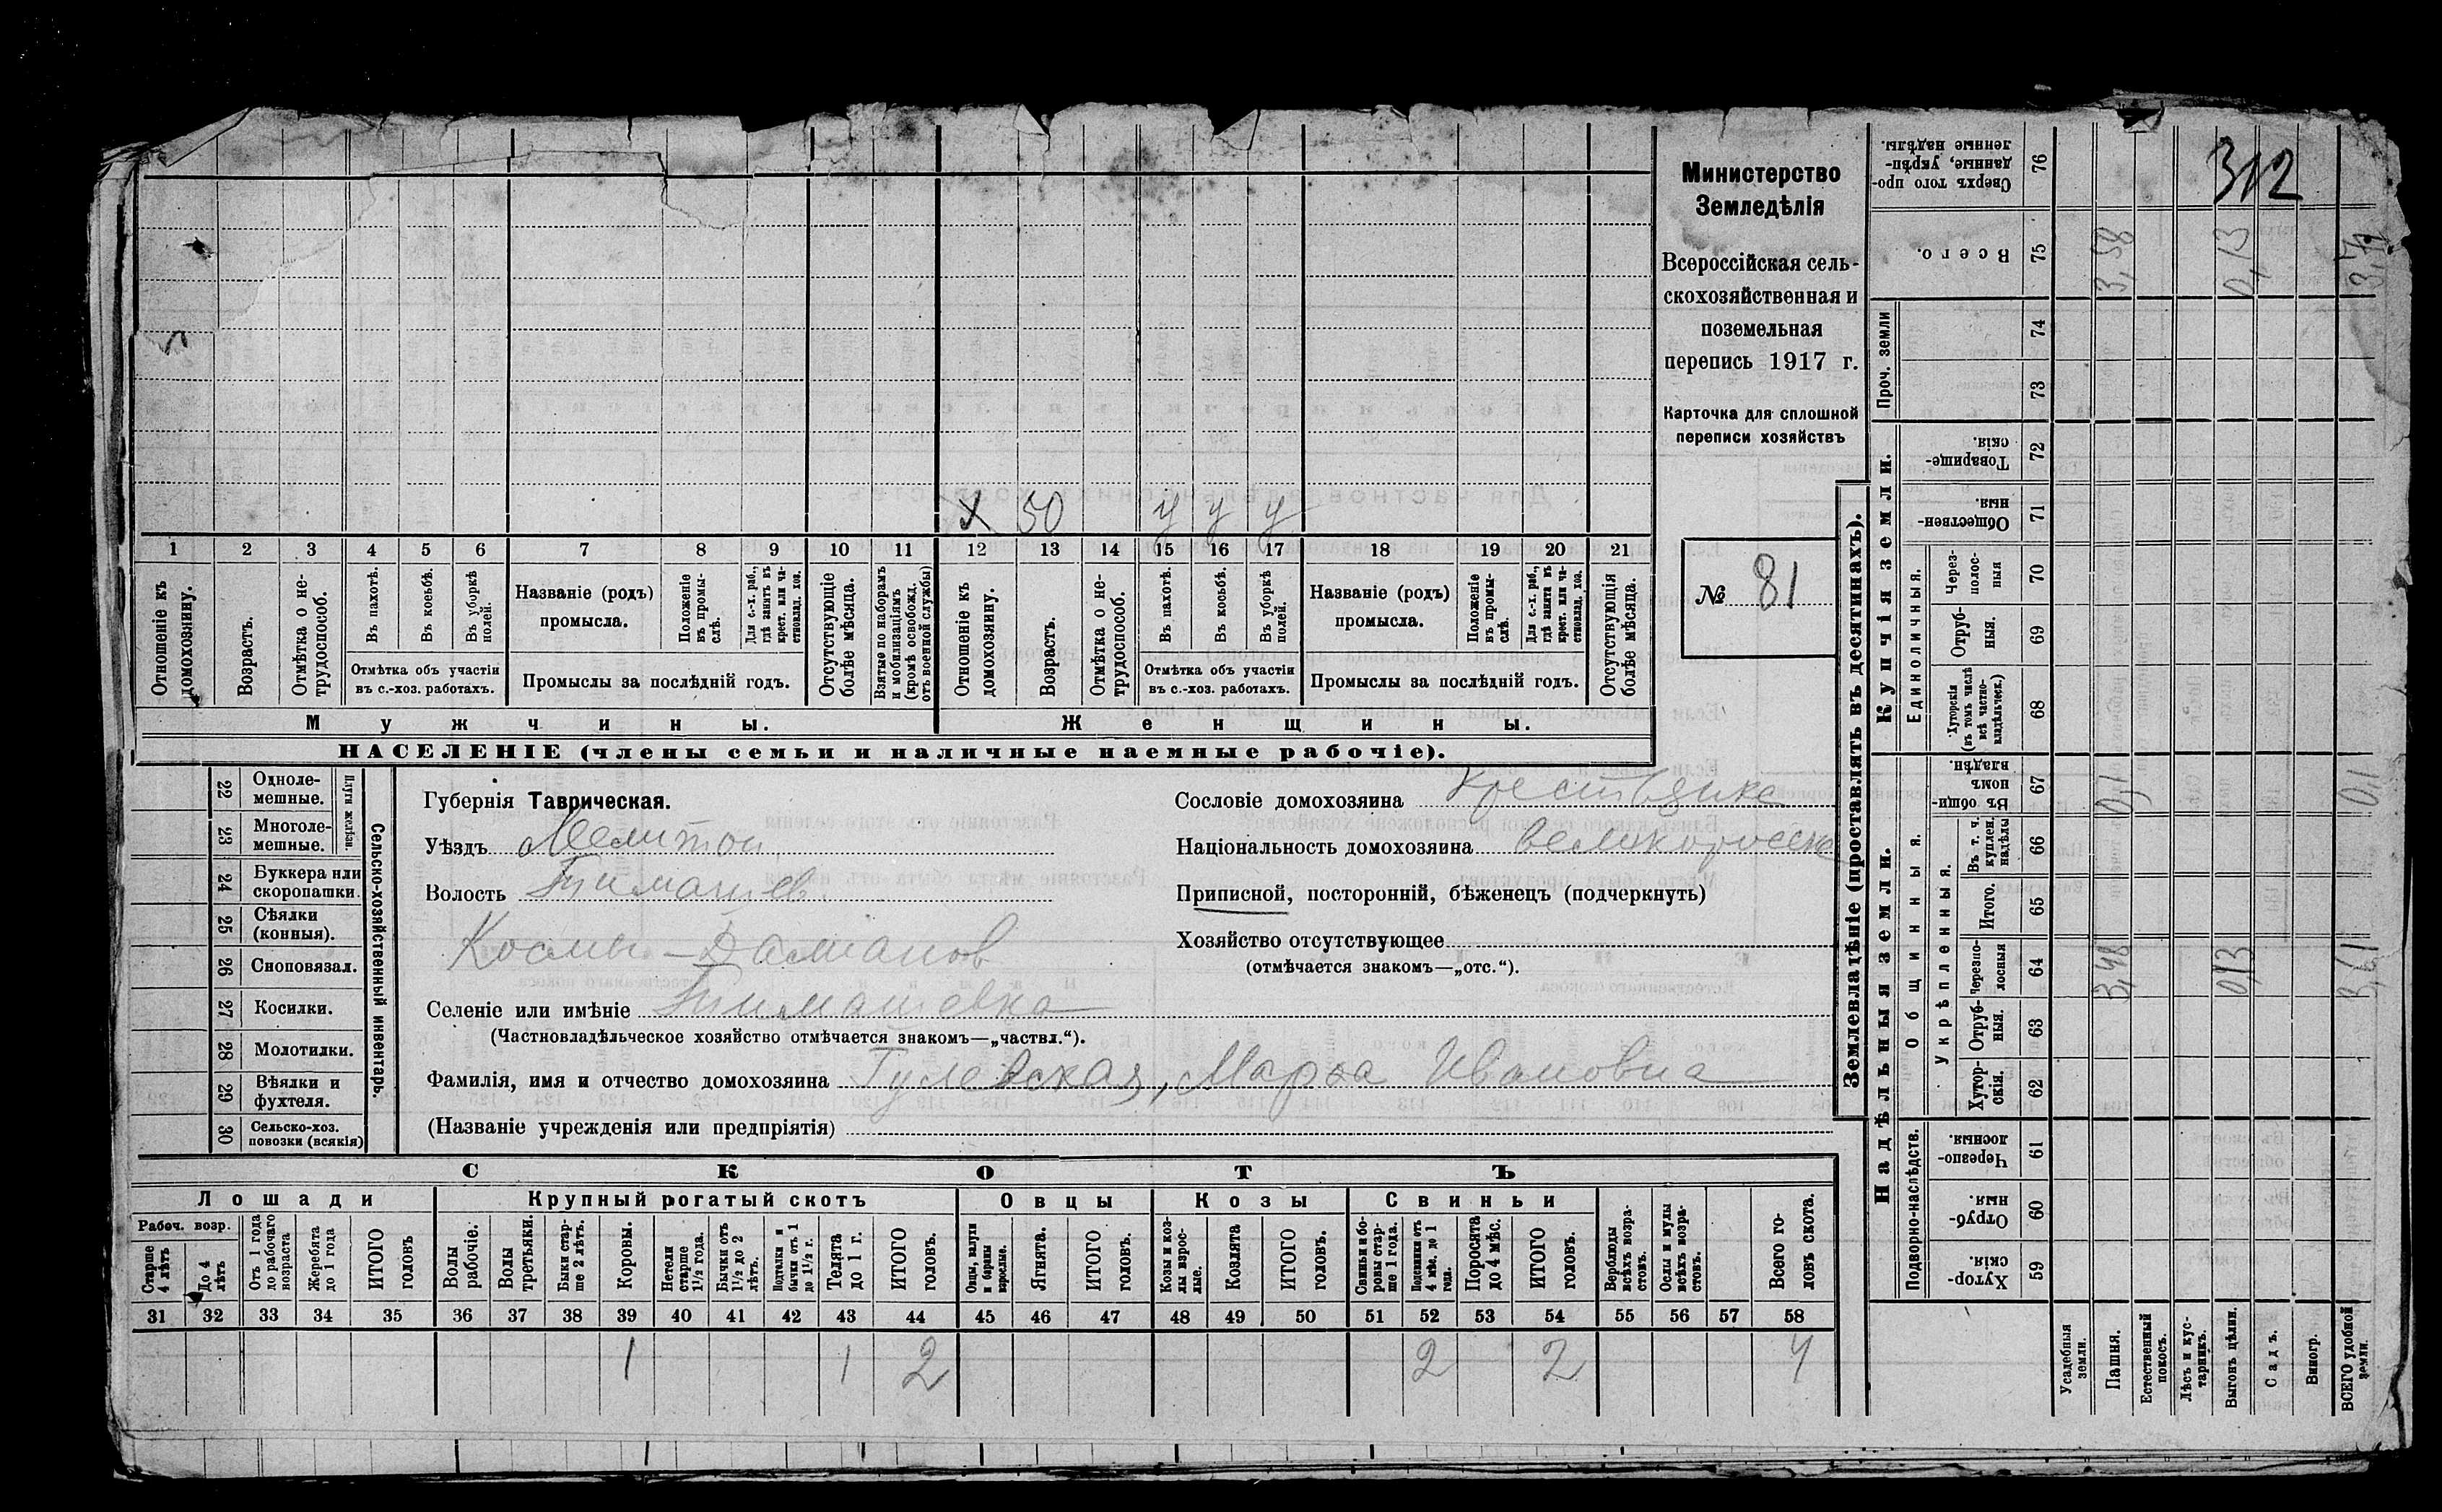 Министерство
Земледѣлія
Всероссійская сель-
скохозяйственная и
поземельная
перепись 1917 г.
Карточка для сплошной
переписи хозяйствъ
№ 81
х 50 у у у
1 2 3 4 5 6 7 8 9 10 11 12 13 14 15 16 17 18 19 20 21
Отношеніе къ домохозяину.
Возрастъ.
Отмѣтка о не-трудоспособ.
Въ пахотѣ.
Въ косьбѣ.
Въ уборкѣ полей.
Отмѣтка объ участіи
въ с.-хоз. работахъ.
Названіе (родъ)
промысла.
Положеніе въ промы-слѣ.
Для с.-х. раб., гдѣ занятъ въ крест. или ча-стновлад. хоз.
Промыслы за послѣдній годъ.
Отсутствующіе болѣе мѣсяца.
Взятые по наборамъ и мобилизаціямъ (кромѣ освобожд. отъ военной службы)
Отношеніе къ домохозяину.
Возрастъ.
Отмѣтка о не-трудоспособ.
Въ пахотѣ.
Въ косьбѣ.
Въ уборкѣ полей.
Отмѣтка объ участіи
въ с.-хоз. работахъ.
Названіе (родъ)
промысла.
Положеніе въ промы-слѣ.
Для с.-х. раб., гдѣ занята въ крест. или ча-стновлад. хоз.
Промыслы за послѣдній годъ.
Отсутствующія болѣе мѣсяца.
Мужчины. Женщины.
НАСЕЛЕНІЕ (члены семьи и наличные наемные рабочіе).
Сельско-хозяйственный инвентарь.
Плуги желѣзн.
22 Одноле-мешные.
23 Многоле-мешные.
24 Буккера или скоропашки.
25 Сѣялки (конныя).
26 Сноповязал.
27 Косилки.
28 Молотилки.
29 Вѣялки и фухтеля.
30 Сельско-хоз. повозки (всякія)
Губернія Таврическая.
Уѣздъ Мелитоп.
Волость Тимашев.
Космы-Дамианов
Селеніе или имѣніе Тимашевка
(Частновладѣльческое хозяйство отмѣчается знакомъ—„частвл.“).
Фамилія, имя и отчество домохозяина Гулевская, Марья Ивановна
(Названіе учрежденія или предпріятія)
Сословіе домохозяина крестьянка
Національность домохозяина великоросска
Приписной, посторонній, бѣженецъ (подчеркнуть)
Хозяйство отсутствующее
(отмѣчается знакомъ—„отс.“).
СКОТЪ
Лошади Крупный рогатый скотъ Овцы Козы Свиньи
Рабоч. возр.
Старше 4 лѣтъ
До 4 лѣтъ
Отъ 1 года до рабочаго возраста
Жеребята до 1 года
ИТОГО головъ
Волы рабочіе.
Волы третьяки.
Быки стар-ше 2 лѣтъ.
Коровы.
Нетели старше 1½ года.
Бычки отъ 1½ до 2 лѣтъ.
Подтелки и бычки отъ 1 до 1½ г.
Телята до 1 г.
ИТОГО головъ.
Овцы, валухи и бараны взрослые.
Ягнята.
ИТОГО головъ.
Козы и коз-лы взрос-лые.
Козлята
ИТОГО головъ.
Свиньи и бо-ровы стар-ше 1 года.
Подсвинки отъ 4 мѣс. до 1 года.
Поросята до 4 мѣс.
ИТОГО головъ.
Верблюды всѣхъ возра-стовъ.
Ослы и мулы всѣхъ возра-стовъ.
Всего го-ловъ скота.
31 32 33 34 35 36 37 38 39 40 41 42 43 44 45 46 47 48 49 50 51 52 53 54 55 56 57 58
1 1 2 2 2 4
Землевладѣніе (проставлять въ десятинахъ).
312
Сверхъ того про-данные, укрѣп-ленные надѣлы. 76
Всего. 75 3,58 0,13 3,71
Проч. земли
74
73
Купчія земли.
Товарище-скія. 72
Обществен-ныя. 71
Единоличныя.
Через-полос-ныя 70
Отруб-ныя. 69
Хуторскія (въ томъ числѣ всѣ частно-владѣльческ.) 68
Надѣльныя земли.
Общинныя.
Въ общин-номъ владѣн. 67 0,1 0,1
Укрѣпленныя.
Въ т. ч. куплен. надѣлы 66
Итого. 65
Черезпо-лосныя 64 3,48 0,13 3,61
Отруб-ныя. 63
Хутор-скія. 62
Подворно-наслѣдств.
Черезпо-лосныя. 61
Отруб-ныя. 60
Хутор-скія 59
Усадебныя земли.
Пашня.
Естественный покосъ.
Лѣсъ и кус-тарникъ.
Выгонъ цѣлин.
Садъ.
Виногр.
ВСЕГО удобной земли.